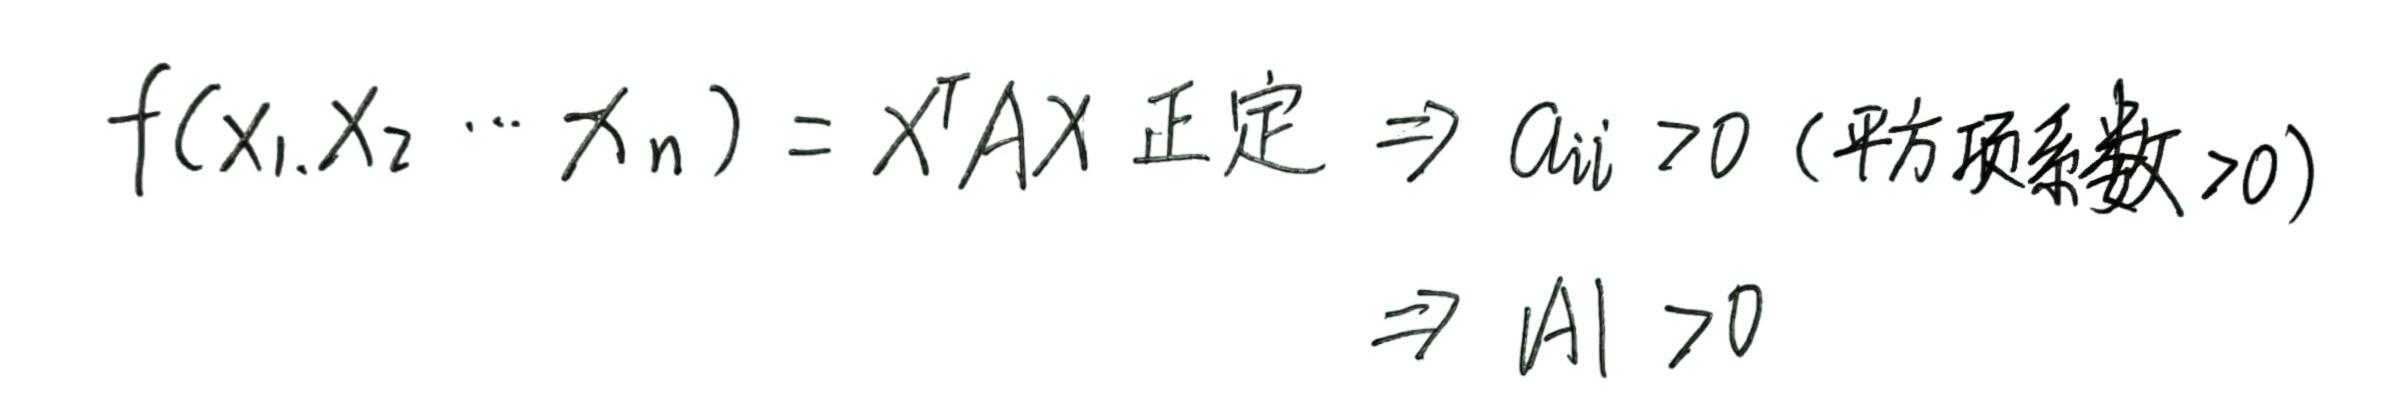 f(x₁.x₂ ⋯ xₙ) = xᵀAx 正定 ⇒ aᵢᵢ >0 (平方项系数>0)
⇒ |A| >0